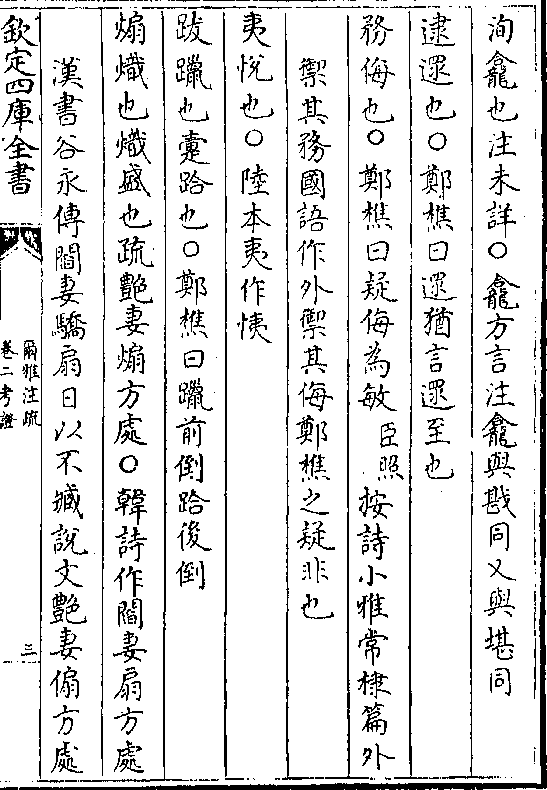 洵龕也注未詳○龕方言注龕與戡同又與堪同
逮遝也○鄭樵曰遝猶言遝至也
務侮也○鄭樵曰疑侮為敏臣照按詩小雅常棣篇外
禦其務國語作外禦其侮鄭樵之疑非也
夷悅也○陸本夷作恞
跋躐也疐跲也○鄭樵曰躐前倒跲後倒
煽熾也熾盛也疏艷妻煽方處○韓詩作閻妻扇方處
漢書谷永傳閻妻驕扇日以不臧說文艷妻傓方處
欽定四庫全書
爾雅注疏
卷二考證
三